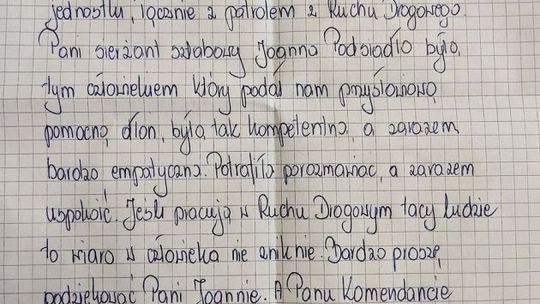 jednostki, łącznie z patrolem z Ruchu Drogowego.
Pani sierżant sztabowy Joanna Podsiadło była
tym człowiekiem który podał nam przysłowiową
pomocną dłoń, była tak kompetentna, a zarazem
bardzo empatyczna. Potrafiła porozmawiać, a zarazem
uspokoić. Jeśli pracują w Ruchu Drogowym tacy ludzie
to wiara w człowieka nie zniknie. Bardzo proszę
podziękować Pani Joannie. A Panu Komendancie